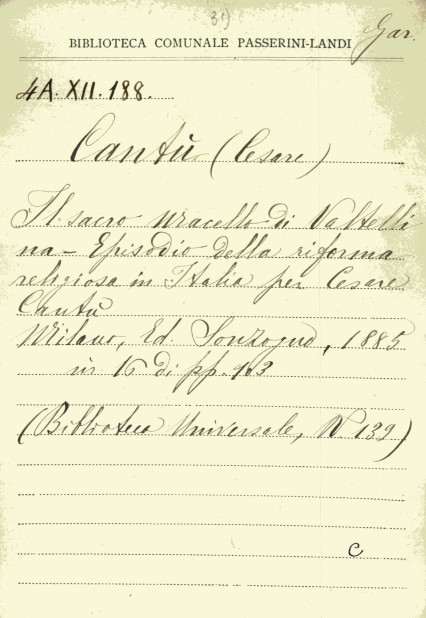 31)
Gar.
BIBLIOTECA COMUNALE PASSERINI-LANDI
4A. XII. 188.
Cantù (Cesare)
Il sacro macello di Valtelli
na - Episodio della riforma
religiosa in Italia per Cesare
Cantù
Milano, Ed. Sonzogno, 1885
in 16 di pp. 103
(Biblioteca Universale, N. 139)
C